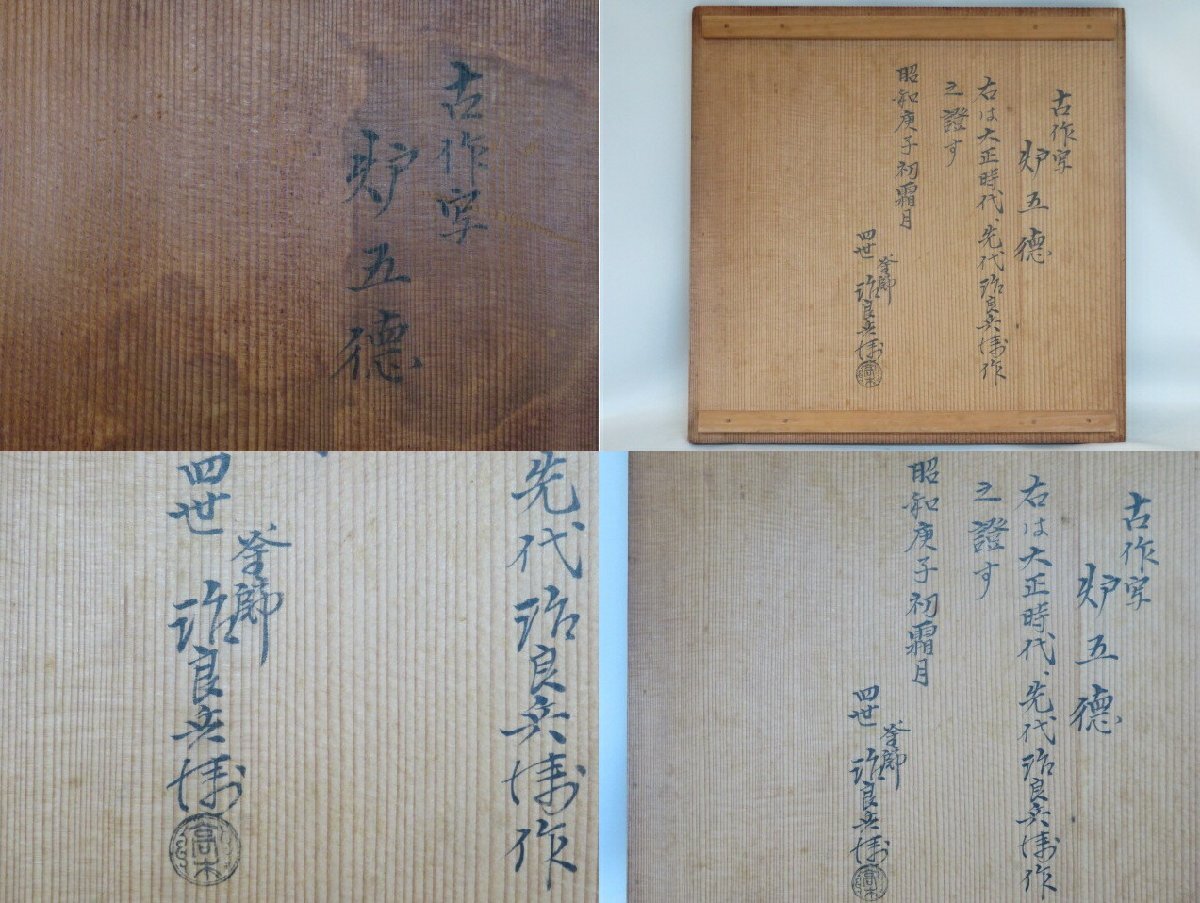 古作写
炉五徳
古作写
炉五徳
右は大正時代、先代治良兵衛作
之證す
昭和庚子初霜月
四世
釜師
治良兵衛
高木
先代治良兵衛作
四世
釜師
治良兵衛
高木
古作写
炉五徳
右は大正時代、先代治良兵衛作
之證す
昭和庚子初霜月
四世
釜師
治良兵衛
高木